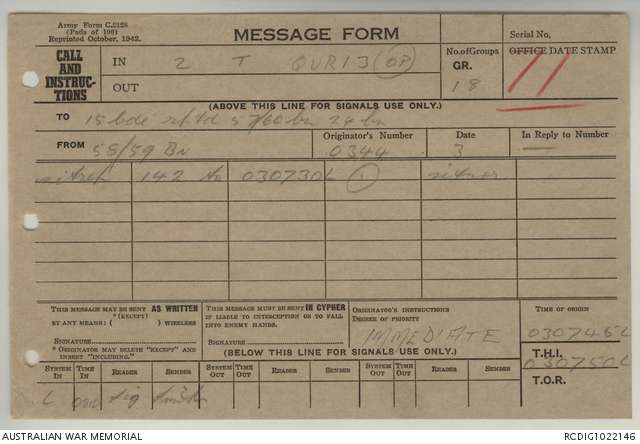 Army Form C.2128
(Pads of 100)
Reprinted October, 1942.
MESSAGE FORM
Serial No.
CALL AND INSTRUCTIONS
IN 2 T QUR13 (OP)
OUT
No. of Groups
GR.
18
OFFICE DATE STAMP
11
(ABOVE THIS LINE FOR SIGNALS USE ONLY.)
TO 15 bde rptd 57/60 bn 24 bn
FROM 58/59 Bn
Originator's Number
0344
Date
3
In Reply to Number
—
sitrep 142 to 030730L (1) sitnor
THIS MESSAGE MAY BE SENT AS WRITTEN
*(EXCEPT)
BY ANY MEANS: ( ) WIRELESS
SIGNATURE
* ORIGINATOR MAY DELETE "EXCEPT" AND
INSERT "INCLUDING."
THIS MESSAGE MUST BE SENT IN CYPHER
IF LIABLE TO INTERCEPTION OR TO FALL
INTO ENEMY HANDS.
SIGNATURE
ORIGINATOR'S INSTRUCTIONS
DEGREE OF PRIORITY
IMMEDIATE
TIME OF ORIGIN
030745L
T.H.I.
030750L
T.O.R.
(BELOW THIS LINE FOR SIGNALS USE ONLY.)
SYSTEM IN TIME IN READER SENDER SYSTEM OUT TIME OUT READER SENDER SYSTEM OUT TIME OUT READER SENDER
L Sig
AUSTRALIAN WAR MEMORIAL
RCDIG1022146